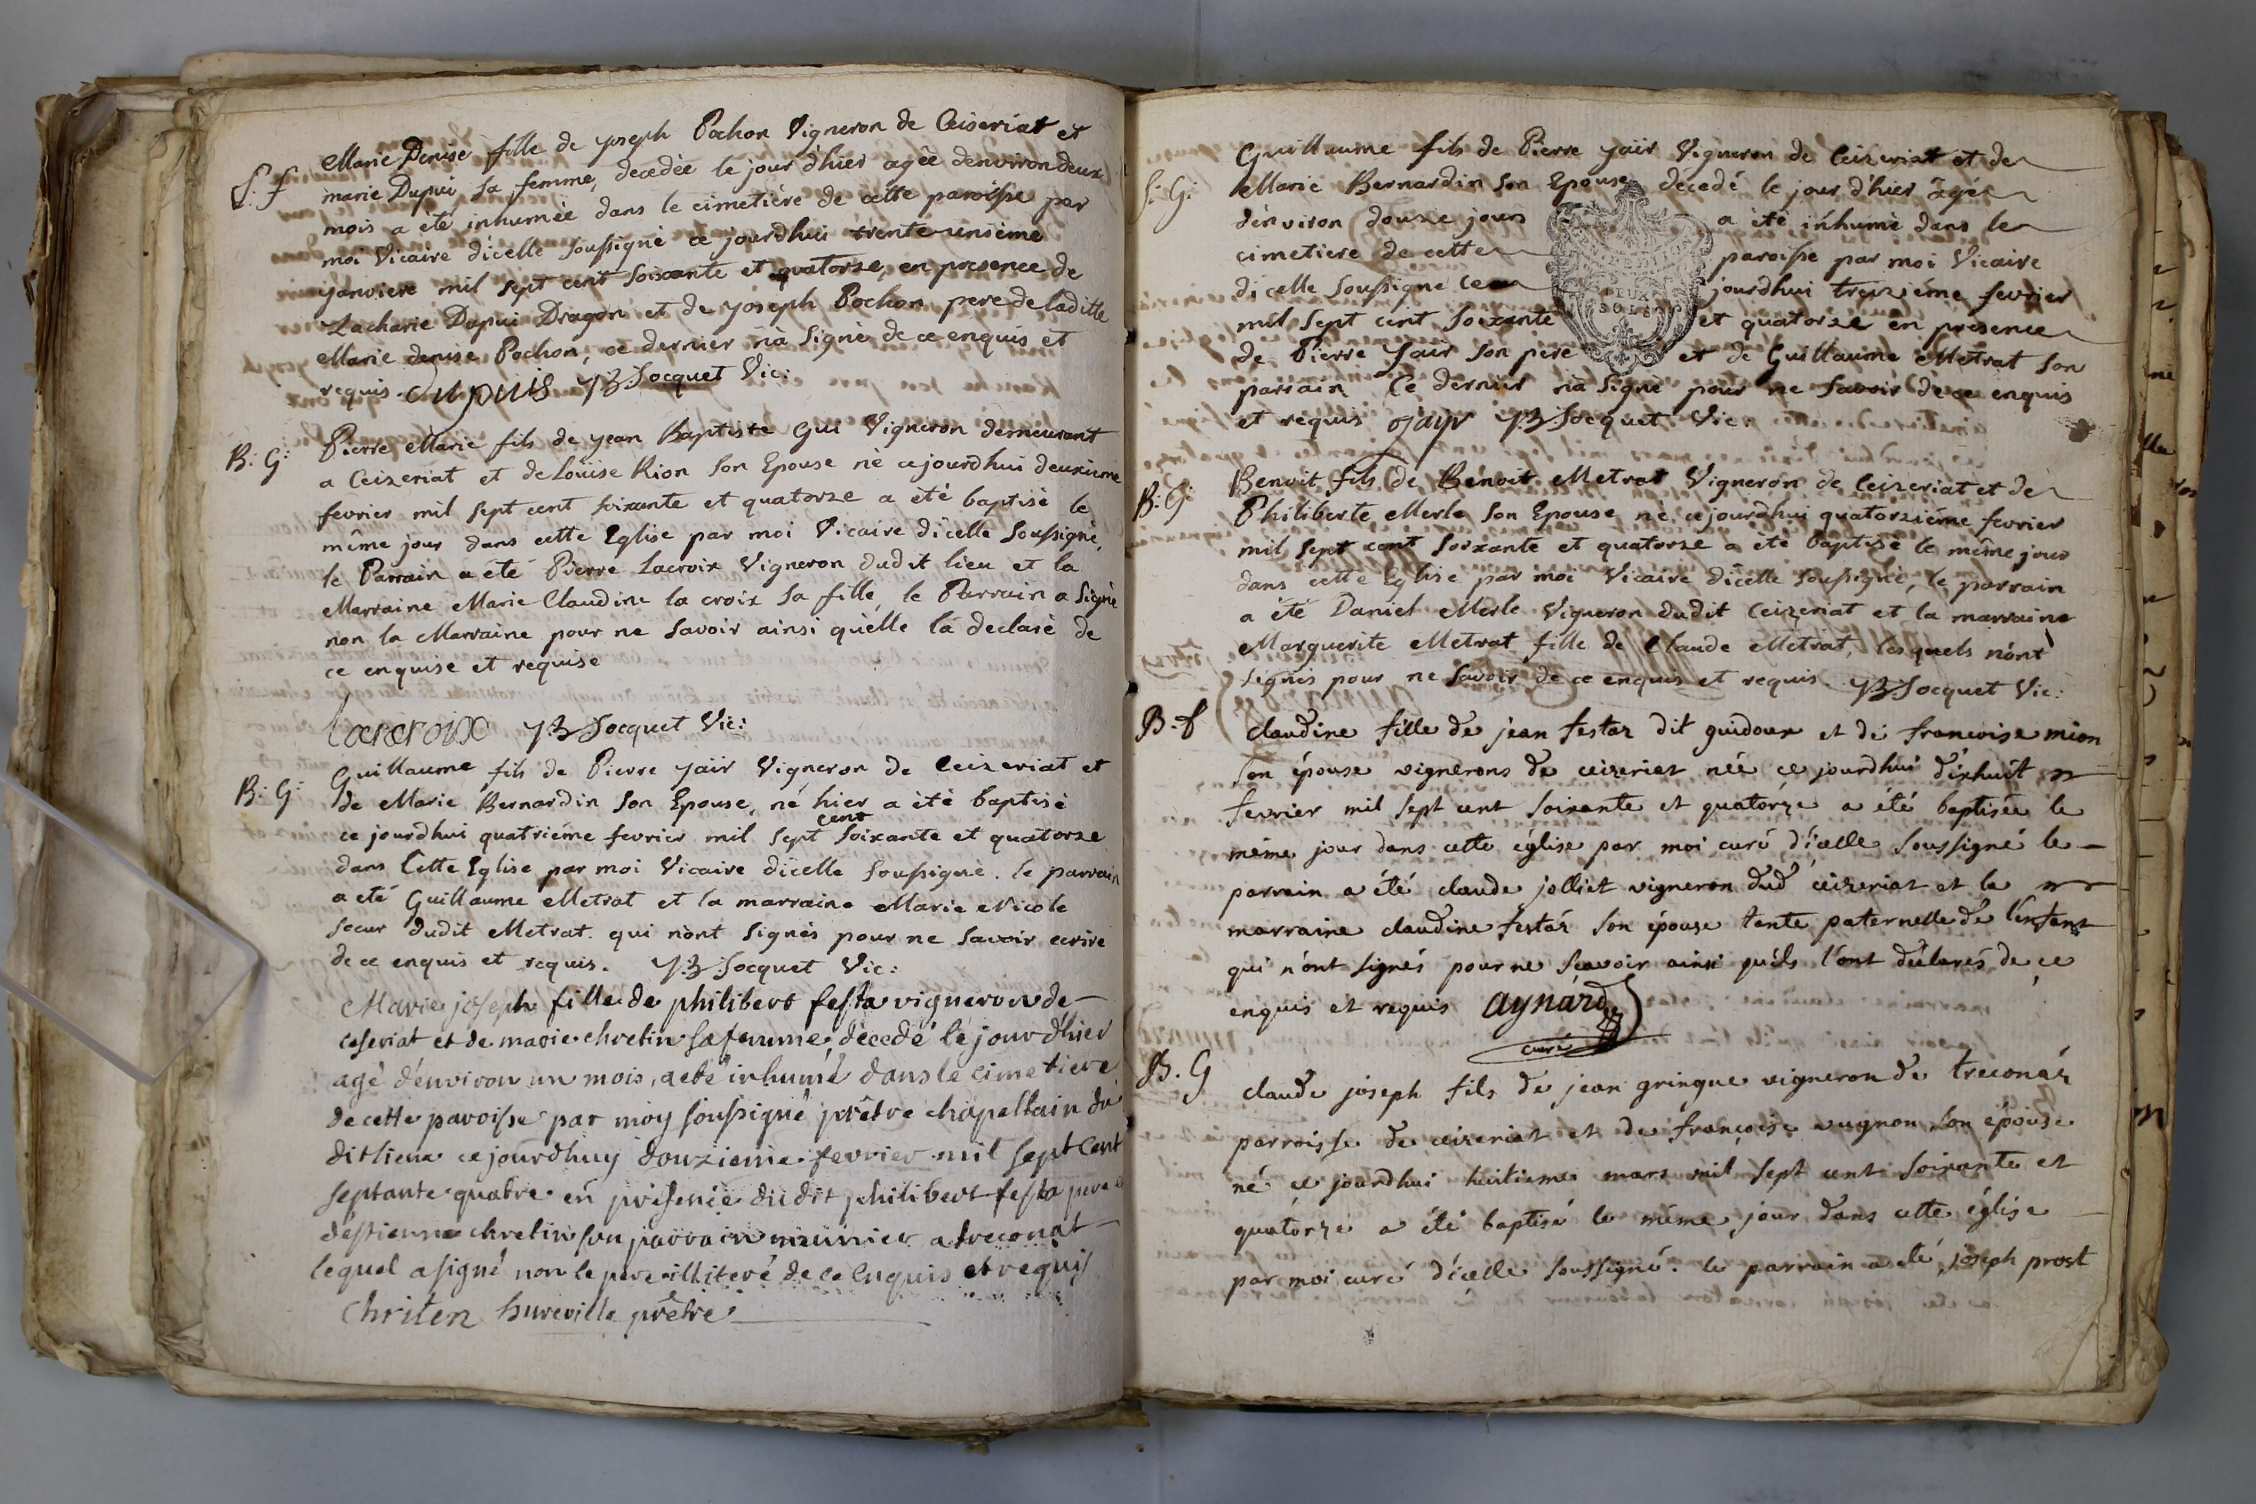 Marie Denise fille de yoseph Pochon Vigneron de Ceiseriat et
S. f marie Dupui sa femme, decedèe le jour d'hier agèe denviron deux
mois a été inhumèe dans le cimetière de cette paroisse par
moi Vicaire dicelle soussigné ce jourdhui trente unième
janviere mil sept cent soixante et quatorse, en presence de
Zacharie Dupui Dragon et de yoseph Pochon pere de laditte
Marie denise Pochon, ce dernier n'a signè de ce enquis et
requis. Dupuis JB Jocquet Vic:
B: G: Pierre Marie fils de yean Baptiste Gui Vigneron demeurant
a Ceizeriat et de Loüise Rion son Epouse nè cejourdhui deuxieme
fevrier mil sept cent soixante et quatorse a été baptisè le
même jour dans cette Eglise par moi Vicaire dicelle soussignè,
le Parrain a été Pierre Lacroix Vigneron dudit lieu et la
Marraine Marie Claudine la croix sa fille, le Parrain a Signè
non la Marraine pour ne savoir ainsi qu'elle la declarè de
ce enquise et requise
Lacroix JB Jocquet Vic:
B: G: Guillaume fils de Pierre yair Vigneron de Ceizeriat et
de Marie Bernardin son Epouse, nè hier a étè baptisè
ce jourdhui quatrième fevrier mil sept cent soixante et quatorse
dans Cette Eglise par moi Vicaire dicelle soussignè. le parrain
a eté Guillaume Metrat et la marraine Marie Nicole
soeur dudit Metrat qui n'ont signès pour ne savoir ecrire
de ce enquis et requis. JB Jocquet Vic:
Marie joseph fille de philibert festa vigneron de
ceseriat et de marie chretin sa femme, décedé le jour d'hier
agé d'environ un mois, a eté inhumé dans le cimetiere
de cette paroisse par moy soussigné prêtre chapellain du
dit lieux ce jourdhuy douzieme fevrier mil sept Cent
septante quatre en présence dudit philibert festa pere
d'estienne chretin son parrain meünier a treconat
lequel a signé non le pere illiteré de ce Enquis et requis
Chriten hureville prêtre
Guillaume fils de Pierre yair Vigneron de Ceizeriat et de
S: G: Marie Bernardin son Epouse decedé le jour d'hier agée
d'environ douze jours a été inhumè dans le
cimetiere de cette paroisse par moi Vicaire
dicelle soussigne ce jourdhui treizième fevrier
mil sept cent soixante et quatorse en presence
de Pierre yair son pere et de Guillaume Metrat son
parrain Ce dernier n'a signè pour ne savoir de ce enquis
et requis jayr JB Jocquet Vic:
B: G: Benoit fils de Benoit Metrat Vigneron de Ceizeriat et de
Philiberte Merle son Epouse nè cejourdhui quatorsième fevrier
mil sept cent soixante et quatorse a étè baptisè le même jour
dans cette Eglise par moi Vicaire dicelle soussignè, le parrain
a été Daniel Merle Vigneron dudit Ceizeriat et la marraine
Marguerite Metrat fille de Claude Metrat, lesquels n'ont
signès pour ne savoir de ce enquis et requis JB Jocquet Vic:
B. f claudine fille de jean festaz dit guidoux et de francoise mion
son épouse vignerons de ceizeriat née ce jourdhui dixhuit
fevrier mil sept cent soixante et quatorze a été baptisée le
même jour dans cette église par moi curé d'icelle soussigné le
parrain a été claude jolliet vigneron dud ceizeriat et la
marraine claudine festaz son épouse tante paternelle de l'enfant
qui n'ont signés pour ne sçavoir ainsi qu'ils l'ont déclarés de ce
enquis et requis aynard
curé
B. G claude joseph fils de jean gringue vigneron de treconaz
parroisse de ceizeriat et de françoise vugnon son épouse
né ce jourdhui huitieme mars mil sept cent soixante et
quatorze a été baptisé le même jour dans cette église
par moi curé d'icelle soussigné. le parrain a été joseph prost